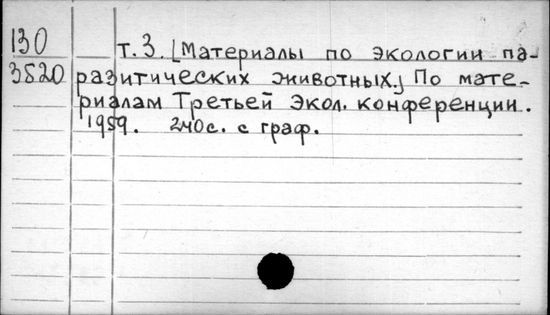 130
3520
т. 3. [Материалы по экологии па-
разитических животных.] По мате-
риалам Третьей Экол. конференции.
1959. 240 с. с граф.